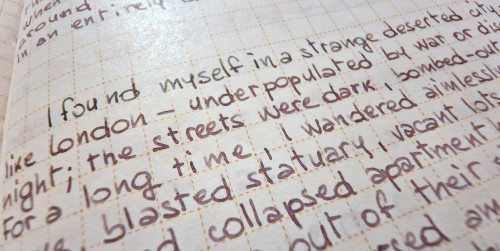 when
around
in an entirely
I found myself in a strange deserted city
like London — underpopulated by war or dis
night; the streets were dark, bombed-out
For a long time, I wandered aimlessly
blasted statuary, vacant lots
d collapsed apartment
out of their
sed am